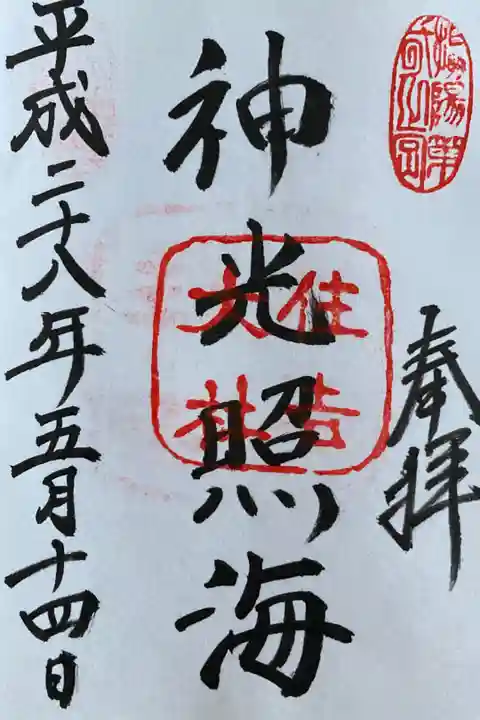 奉拝
神光照海
住吉
大社
平成二十八年五月十四日